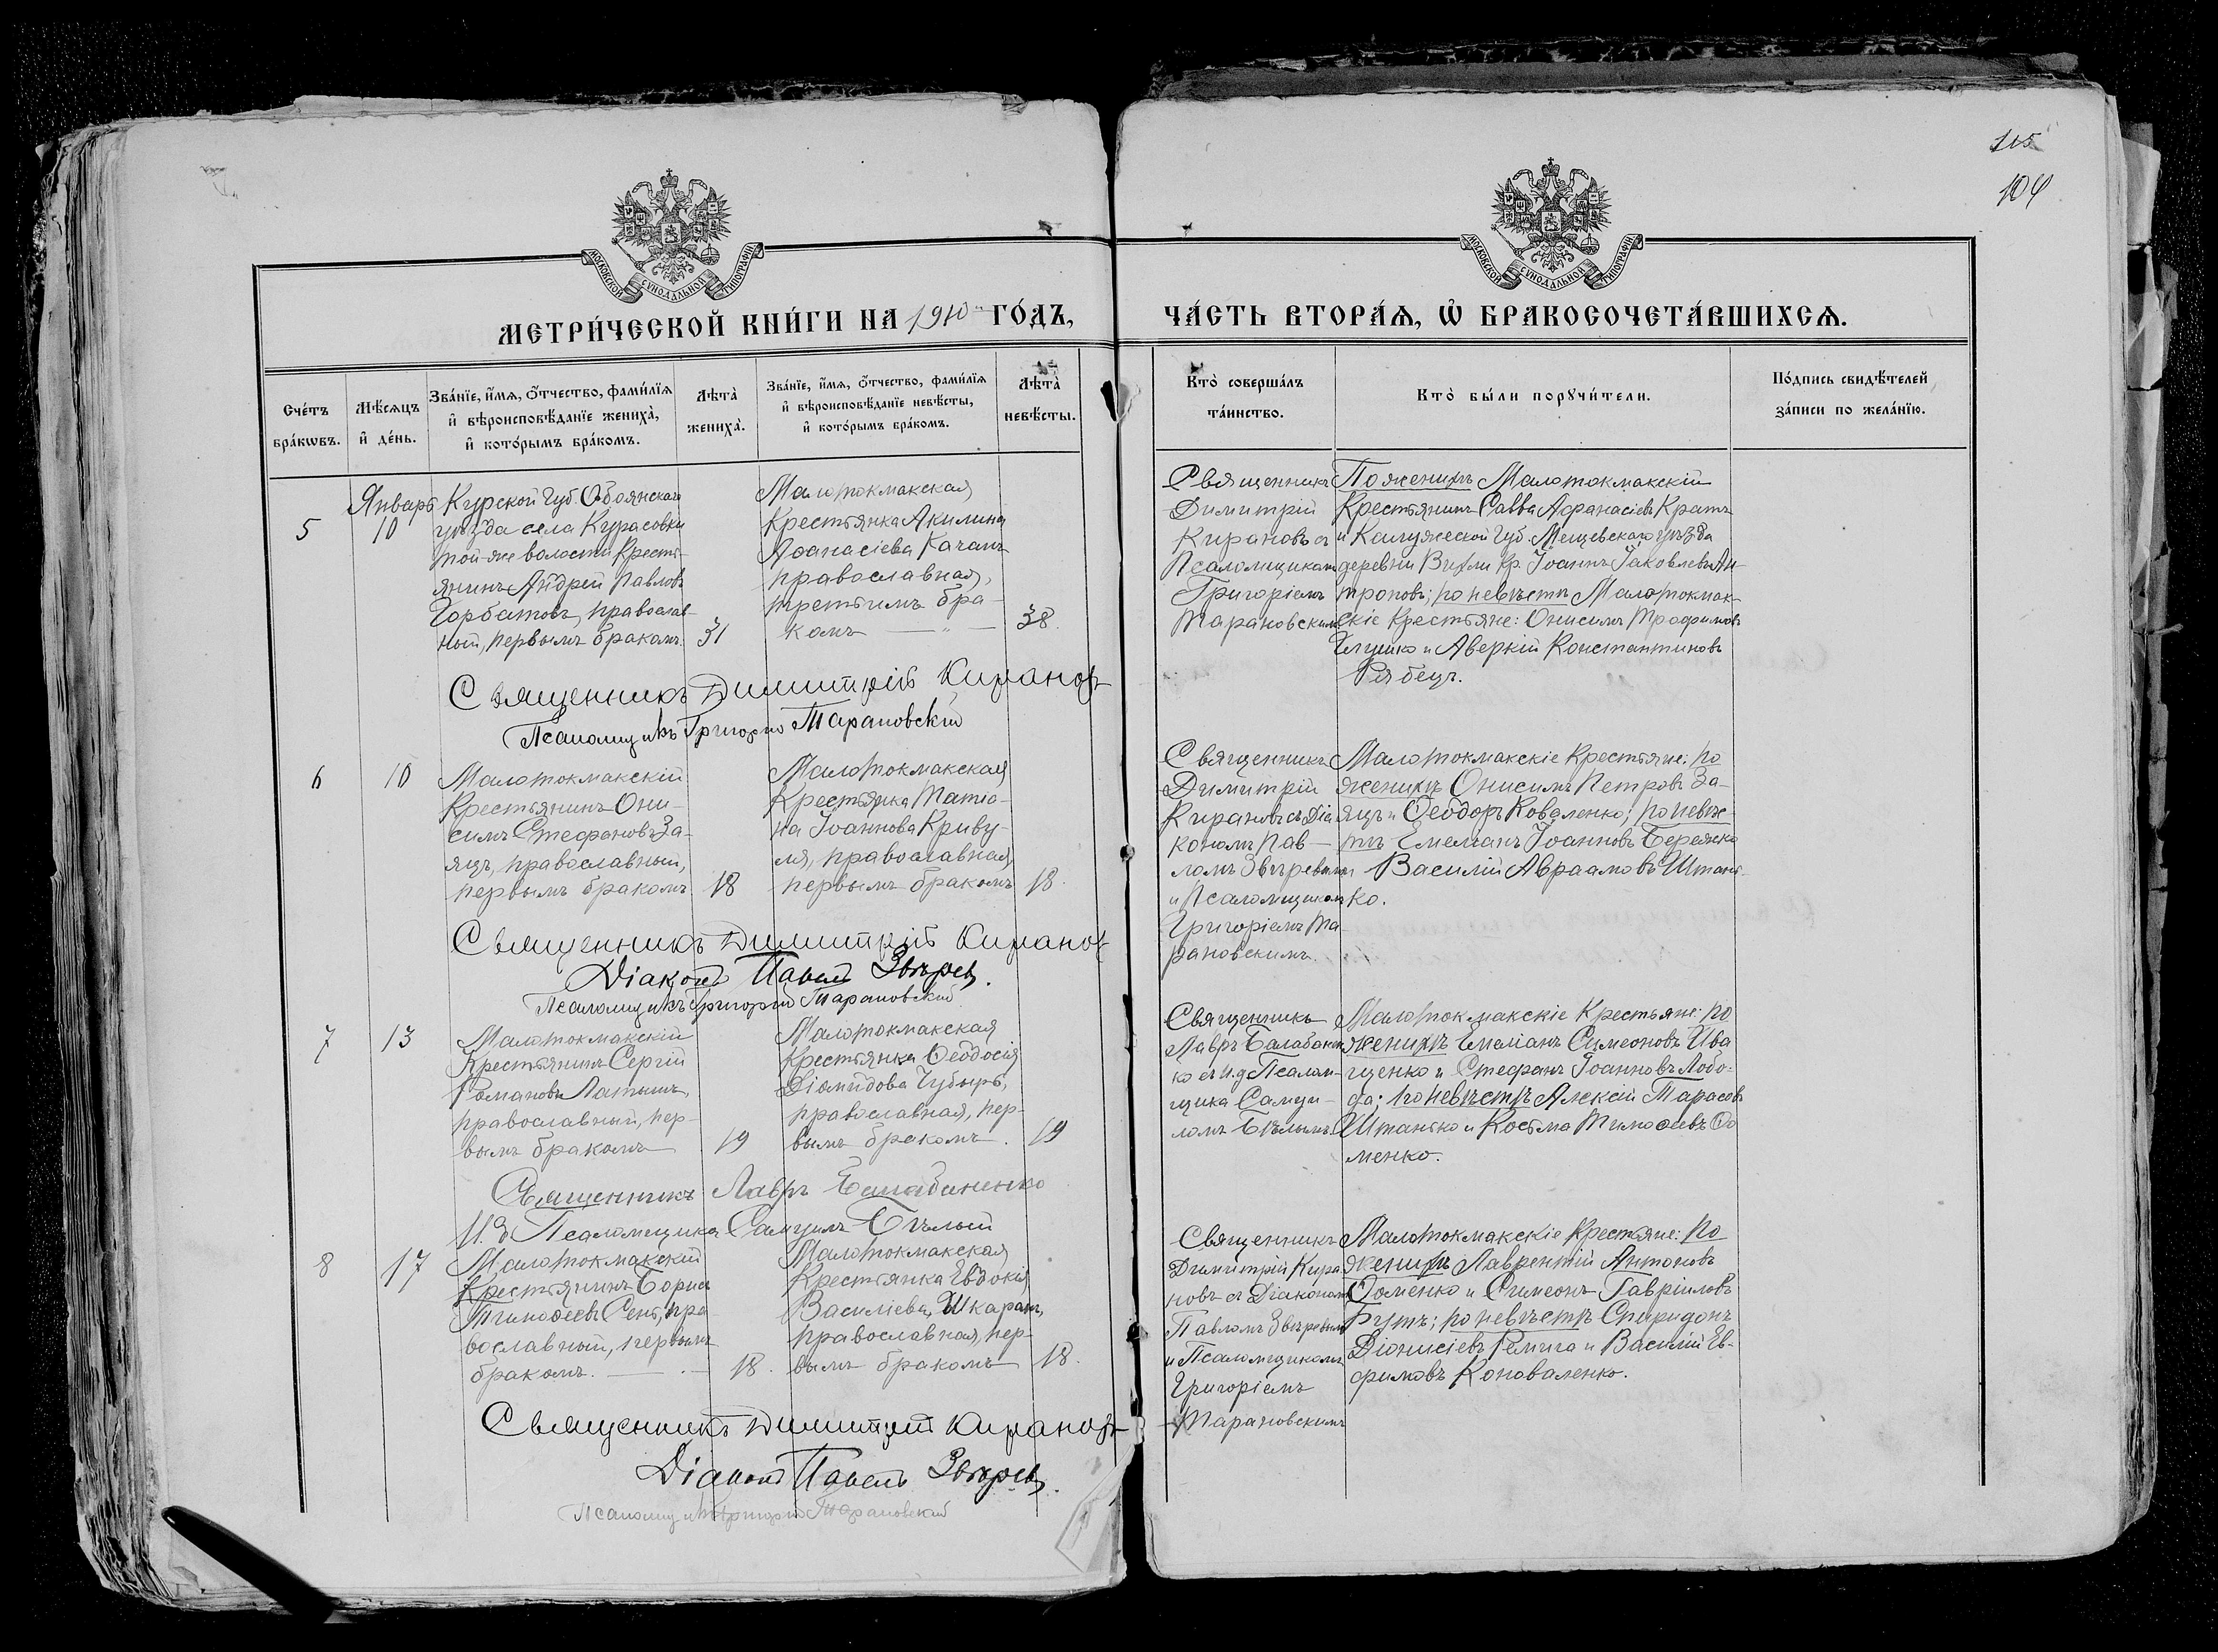 115
104
МОСКОВСКОЙ СѴНОДАЛЬНОЙ ТИПОГРАФІИ
МОСКОВСКОЙ СѴНОДАЛЬНОЙ ТИПОГРАФІИ
МЕТРИ́ЧЕСКОЙ КНИ́ГИ НА 1910 ГО́ДЪ,
ЧА́СТЬ ВТОРА́Ѧ, Ѽ БРАКОСОЧЕТА́ВШИХСѦ.
Сче́тъ бра́кѡвъ.
Мѣ́сѧцъ и҆ де́нь.
Зва́нїе, и҆́мѧ, ѻ҆́тчество, фами́лїѧ и҆ вѣроисповѣ́данїе жениха̀, и҆ кото́рымъ бра́комъ.
Лѣта̀ жениха̀.
Зва́нїе, и҆́мѧ, ѻ҆́тчество, фами́лїѧ и҆ вѣроисповѣ́данїе невѣ́сты, и҆ кото́рымъ бра́комъ.
Лѣта̀ невѣ́сты.
Кто̀ соверша́лъ та́инство.
Кто̀ бы́ли порꙋчи́тели.
По́дпись свидѣ́телей за́писи по жела́нїю.
5
Январь
10
Курской Губ. Обоянскаго
уѣзда села Курасовки
той-же волости Кресть-
янинъ Андрей Павловъ
Горбатовъ, православ-
ный, первымъ бракомъ.
31
Малотокмакская
Крестьянка Акилина
Аѳанасіева Качанъ
православная,
третьимъ бра-
комъ — " —
38.
Священникъ
Димитрій
Кирановъ съ
Псаломщикомъ
Григоріемъ
Тарановскимъ
По женихѣ Малотокмакскій
Крестьянинъ Савва Аѳанасіевъ Кратъ
и Калужской Губ. Мещевскаго уѣзда
деревни Кр. Іоаннъ Іаковлевъ Ан-
троповъ; по невѣстѣ Малотокмак-
скіе Крестьяне: Онисимъ Трофимовъ
Глушко и Аверкій Константиновъ
Рябецъ.
Священникъ Димитрій Кирановъ
Псаломщикъ Григорій Тарановскій
6
10
Малотокмакскій
Крестьянинъ Они-
симъ Стефановъ За-
яцъ, православный,
первымъ бракомъ
18
Малотокмакская
Крестьянка Татіа-
на Іоаннова Криву-
ля, православная,
первымъ бракомъ
18.
Священникъ
Димитрій
Кирановъ съ Діа
кономъ Пав-
ломъ Звѣревымъ
и Псаломщикомъ
Григоріемъ Та-
рановскимъ.
Малотокмакскіе Крестьяне: по
женихѣ Онисимъ Петровъ За-
яцъ и Ѳеодоръ Коваленко; по невѣс-
тѣ Емеліанъ Іоанновъ Бережко
и Василій Авраамовъ Штань-
ко.
Священникъ Димитрій Кирановъ
Діаконъ Павелъ Звѣревъ.
Псаломщикъ Григорій Тарановскій
7
13
Малотокмакскій
Крестьянинъ Сергій
Романовъ Латышъ,
православный, пер-
вымъ бракомъ
19
Малотокмакская
Крестьянка Ѳеодосія
Діомидова Чубырь,
православная, пер-
вымъ бракомъ.
19
Священникъ
Лавръ Балабанен
ко съ И. д. Псалом-
щика Самуи-
ломъ Бѣлымъ.
Малотокмакскіе Крестьяне: по
женихѣ Емеліанъ Симеоновъ Ива
щенко и Стефанъ Іоанновъ Лобо-
да; по невѣстѣ Алексій Тарасовъ
Штанько и Косьма Тимоѳеевъ Ѳо
менко.
Священникъ Лавръ Балабаненко
И. д. Псаломщика Самуилъ Бѣлый
8
17
Малотокмакскій
Крестьянинъ Борисъ
Тимоѳеевъ Сень, пра
вославный, первымъ
бракомъ. —
18.
Малотокмакская
Крестьянка Евдокія
Василіева Шкарапъ,
православная, пер-
вымъ бракомъ
18.
Священникъ
Димитрій Кира
новъ съ Діакономъ
Павломъ Звѣревымъ
и Псаломщикомъ
Григоріемъ
Тарановскимъ
Малотокмакскіе Крестьяне: по
женихѣ Лаврентій Антоновъ
Ѳоменко и Симеонъ Гавріиловъ
Бутъ; по невѣстѣ Спиридонъ
Діонисіевъ Ремига и Василій Ев-
фимовъ Коноваленко.
Священникъ Димитрій Кирановъ
Діаконъ Павелъ Звѣревъ.
Псаломщикъ Григорій Тарановскій